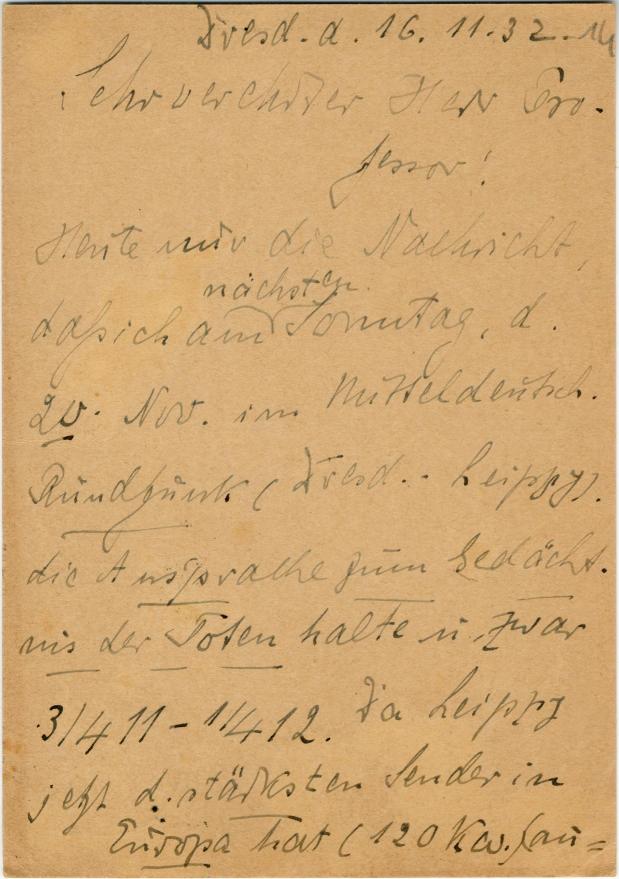 Dresd. d. 16. 11. 32.
Sehr verehrter Herr Pro-
fessor!
Heute nur die Nachricht,
nächsten
daß ich am Sonntag, d.
20. Nov. im Mitteldeutsch.
Rundfunk (Dresd. - Leipzg).
die Ansprache zum Gedächt.
nis der Toten halte u. zwar
3/4 11 - 1/4 12. Da Leipzg
jetzt d. stärksten Sender in
Europa hat (120 Kw.) au=